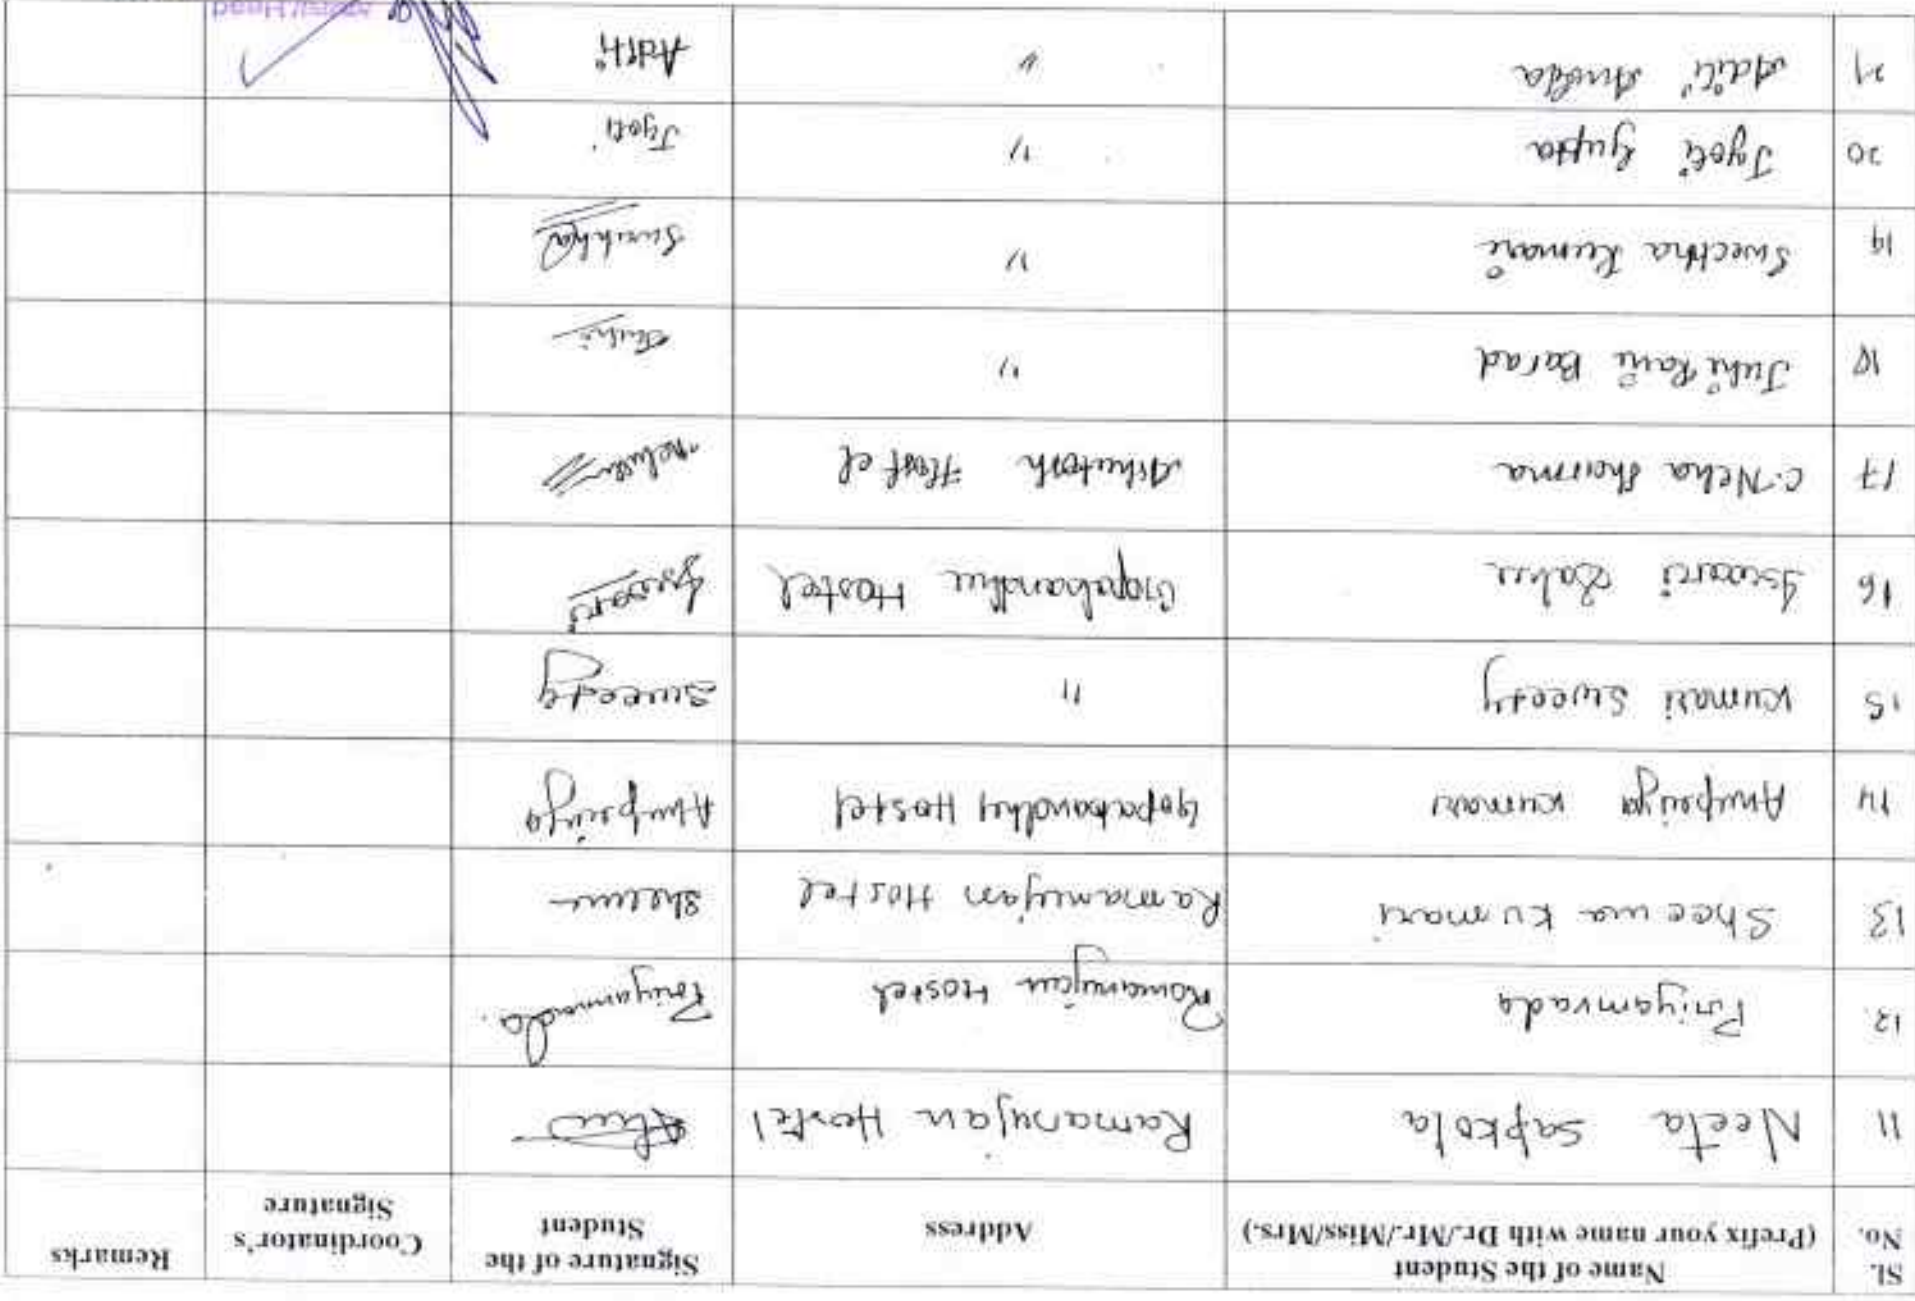 Sl. No. Name of the Student (Prefix your name with Dr./Mr./Miss/Mrs.) Address Signature of the Student Coordinator's Signature Remarks
11 Neeta Sapkota Ramanujan Hostel
12. Priyamvada Ramanujan Hostel Priyamvada.
13 Sheema kumari Ramanujan Hostel Sheema
14 Anupriya kumari Gopabandhu Hostel Anupriya
15 Kumari Sweety " Sweety
16 Iswari Hostel Iswari
17 C. Neha Sharma Ashutosh Hostel
18 Juhi Rani Barad " Juhi
19 Swechha Kumari " Swechha
20 Jyoti Gupta " Jyoti
21 Aditi " Aditi